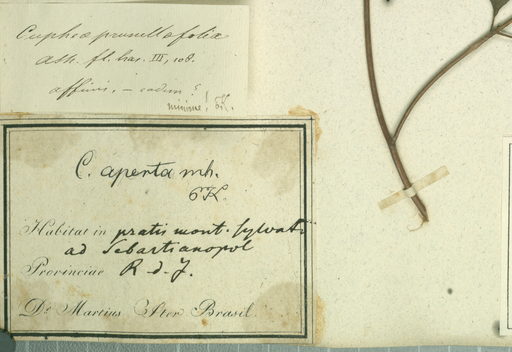 Cuphea prunellaefolia
Ash. fl. bras. III, 108.
affinis, – eadem ?
minime! EK.
C. aperta mh.
EK.
Habitat in pratis mont. sylvati
ad Sebastianopol
Provinciae R. d. J.
Dr Martius Iter Brasil.